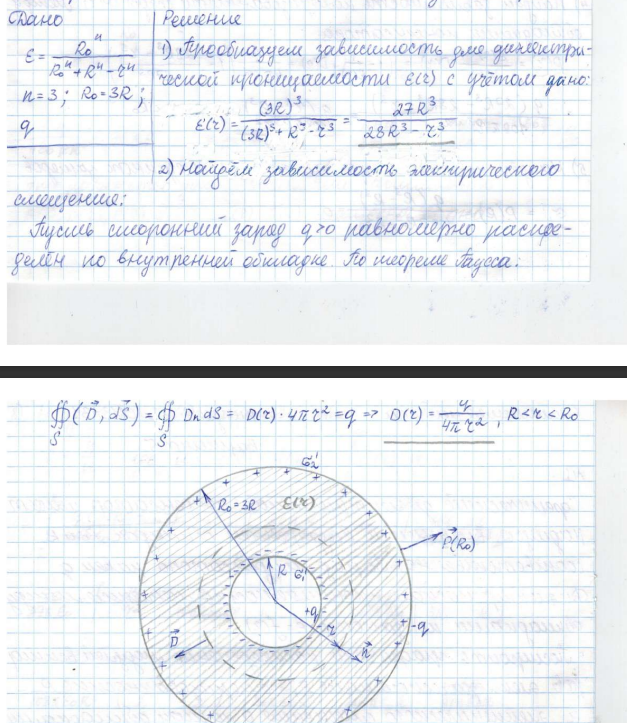 Дано
Решение
ε = R₀ⁿ / (R₀ⁿ + Rⁿ - rⁿ)
n = 3; R₀ = 3R;
q
1) Преобразуем зависимость для диэлектри-
ческой проницаемости ε(r) с учётом дано:
ε(r) = (3R)³ / ((3R)³ + R³ - r³) = 27R³ / (28R³ - r³)
2) Найдём зависимость электрического
смещения:
Пусть сторонний заряд q>0 равномерно распре-
делён по внутренней обкладке. По теореме Гаусса:
∯(D⃗, dS⃗) = ∯ Dn dS = D(r) · 4πr² = q => D(r) = q / 4πr², R < r < R₀
S S
σ₂'
R₀ = 3R
ε(r)
P⃗(R₀)
R
σ₁'
+q
-q
r
D⃗
n⃗